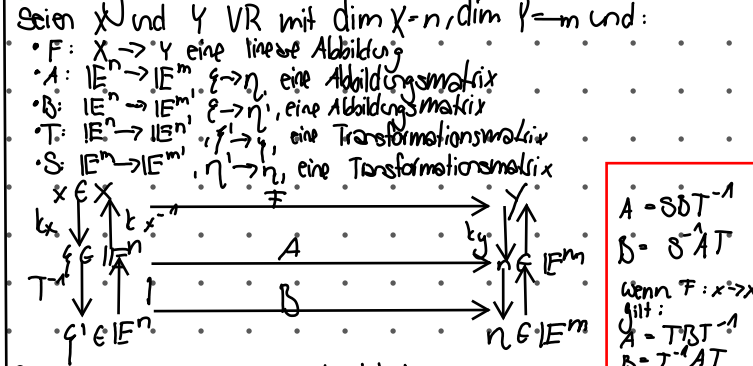 Seien X und Y VR mit dim X=n, dim Y=m und:
• F: X → Y eine lineare Abbildung
• A: 𝔼ⁿ → 𝔼ᵐ ξ→η, eine Abbildungsmatrix
• B: 𝔼ⁿ → 𝔼ᵐ' ξ→η', eine Abbildungsmatrix
• T: 𝔼ⁿ → 𝔼ⁿ', ξ'→ξ, eine Transformationsmatrix
• S: 𝔼ᵐ → 𝔼ᵐ', η'→η, eine Transformationsmatrix
x ∈ X F Y
kx kx⁻¹ ky
ξ ∈ 𝔼ⁿ A η ∈ 𝔼ᵐ
T⁻¹ B
ξ' ∈ 𝔼ⁿ η ∈ 𝔼ᵐ
A = SBT⁻¹
B = S⁻¹AT
wenn F: x→x
gilt:
A = TBT⁻¹
B = T⁻¹AT